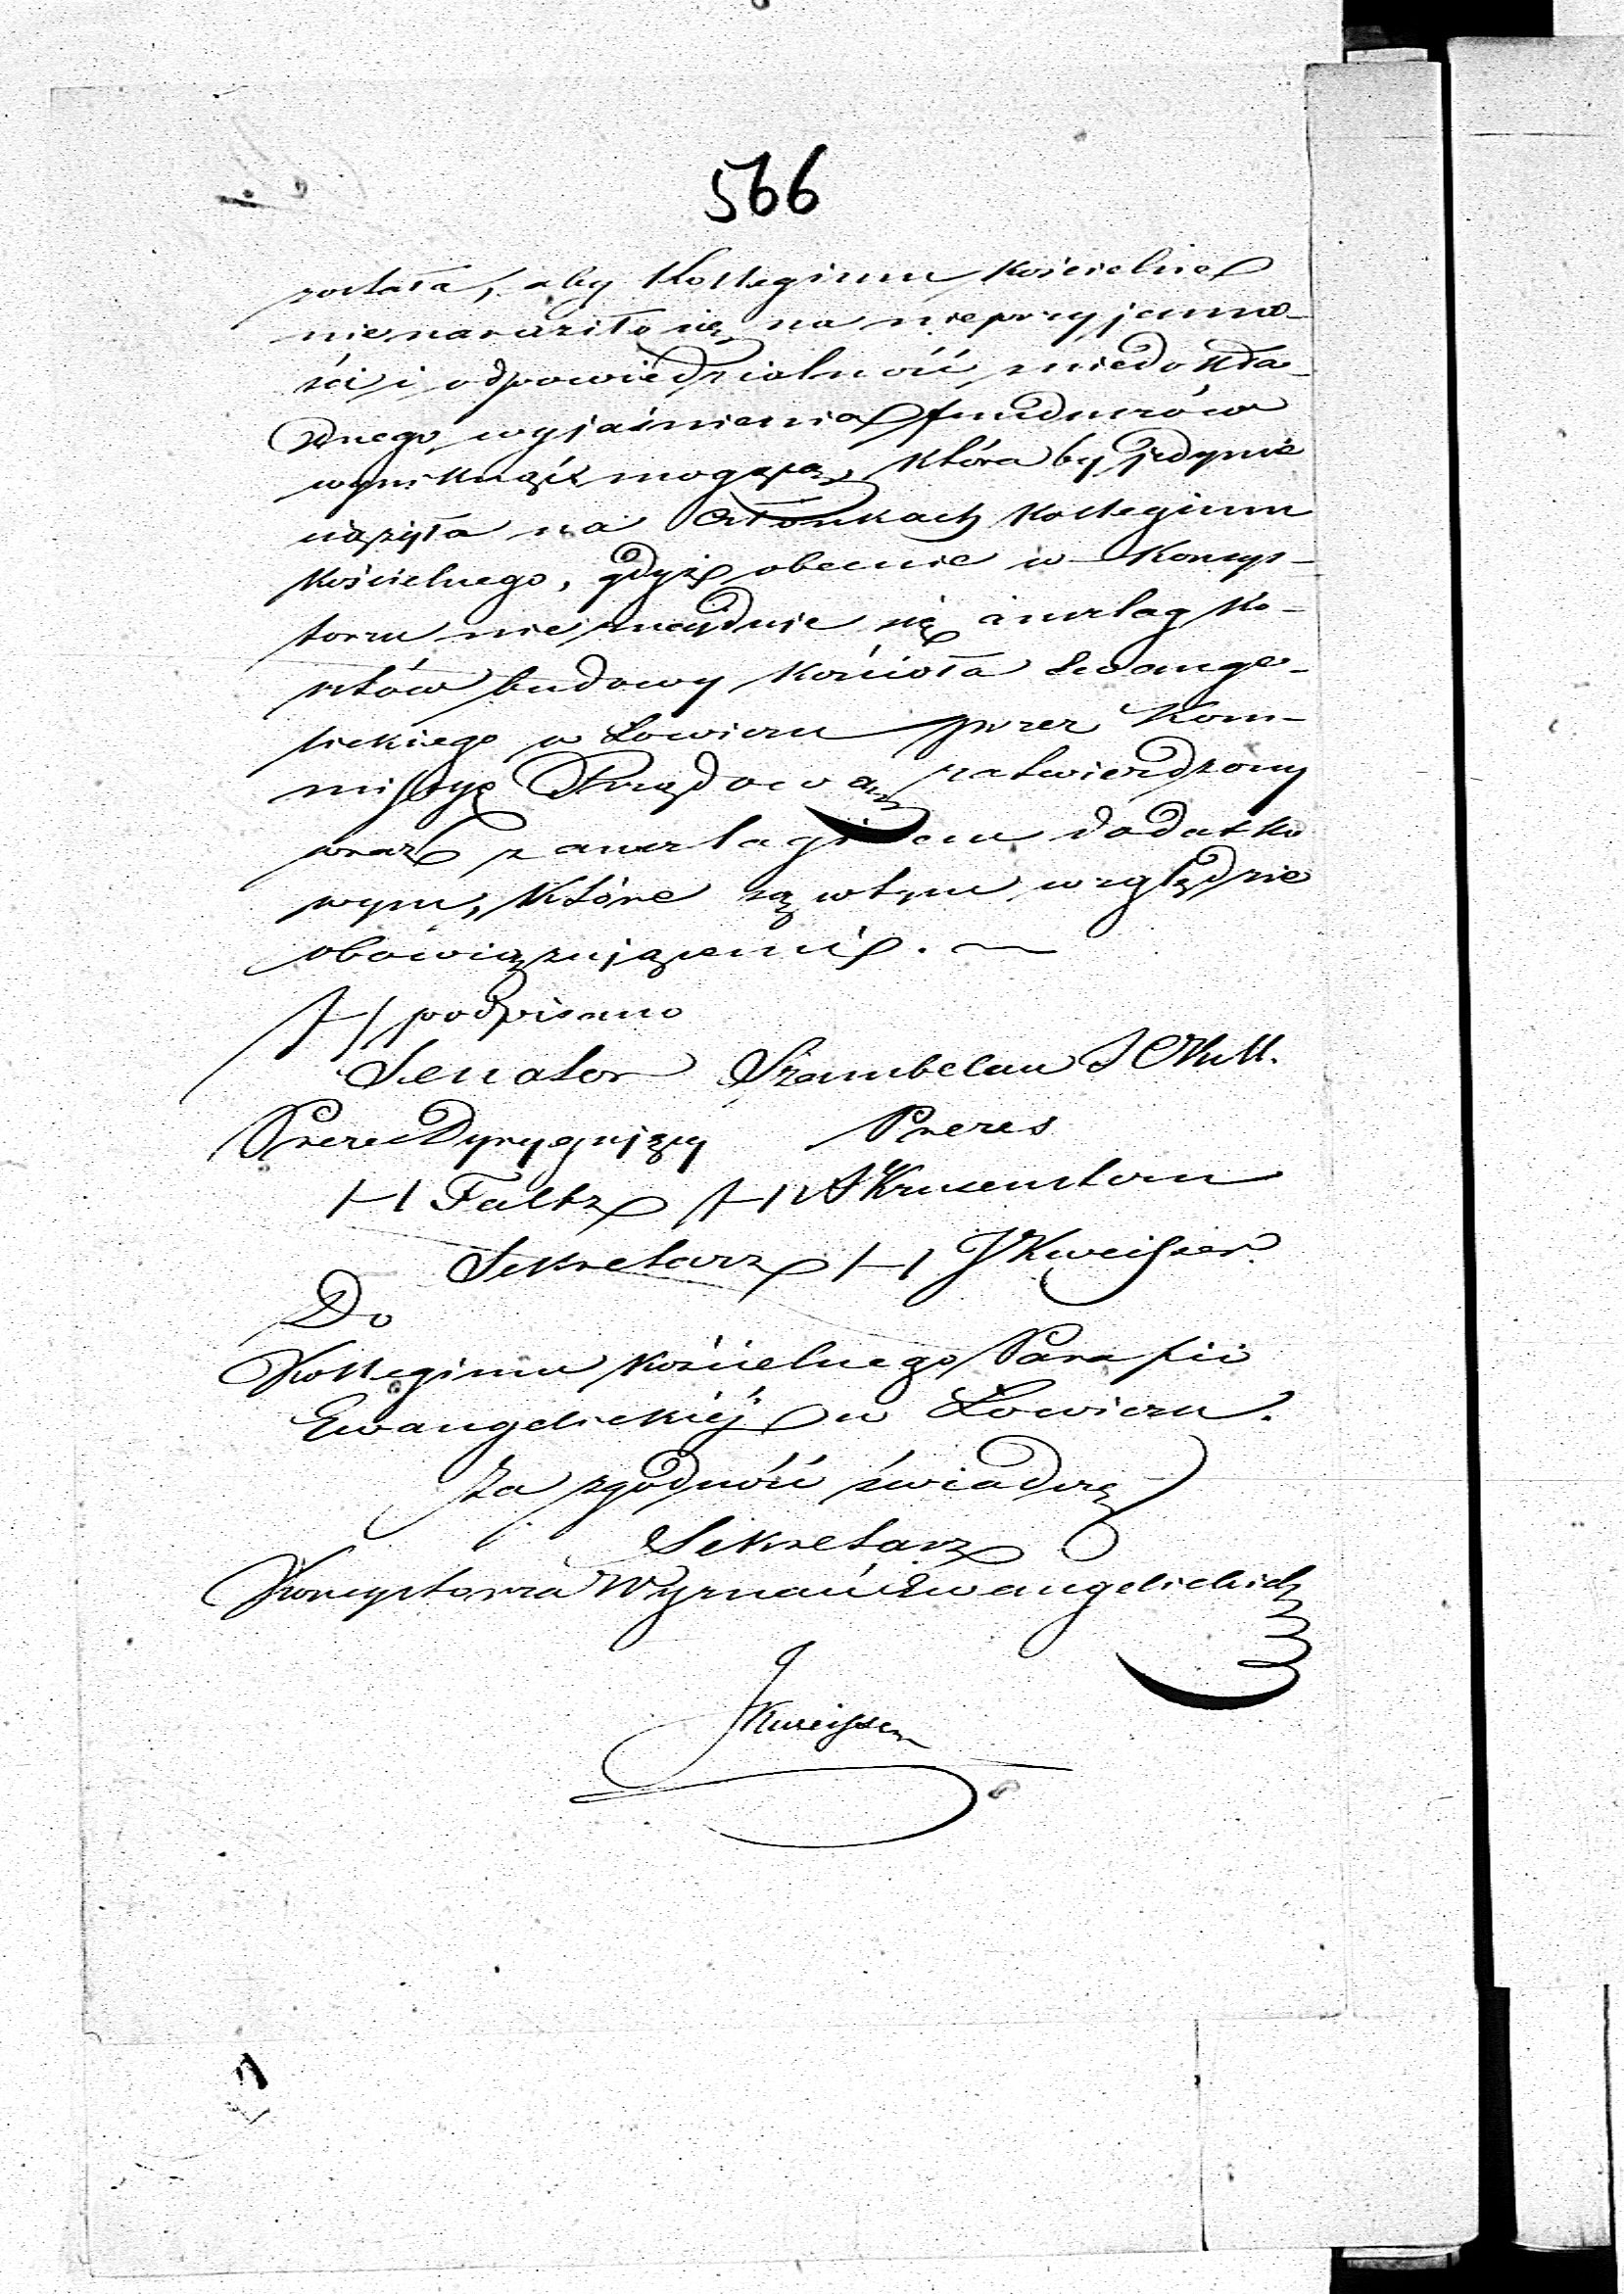 566
została, aby Kollegium Kościelne
nienaraziło się na nieprzyjemno-
ści i odpowiedzialność, z niedokła-
dnego wyjaśnienia funduszów
wyniknąć mogącą, która by jedynie
ciążyła na Członkach Kollegium
Kościelnego, gdyż obecnie w Konsys-
torzu nie znajduje się anszlag ko-
sztów budowy Kościoła Ewange-
lickiego w Łowiczu przez Kom-
missyę Rządową zatwierdzony
wraz z anszlagiem dodatko
wym, które są w tym względzie
obowiązującemi. —
podpisano
Senator Szambelan
Prezes Dyrygujący Prezes
Faltz Krusenstern
Sekretarz J Kweisser
Do
Kollegium Kościelnego Parafii
Ewangelickiéj w Łowiczu.
Za zgodność świadczę
Sekretarz
Konsystorza Wyznań Ewangelickich
JKweisser